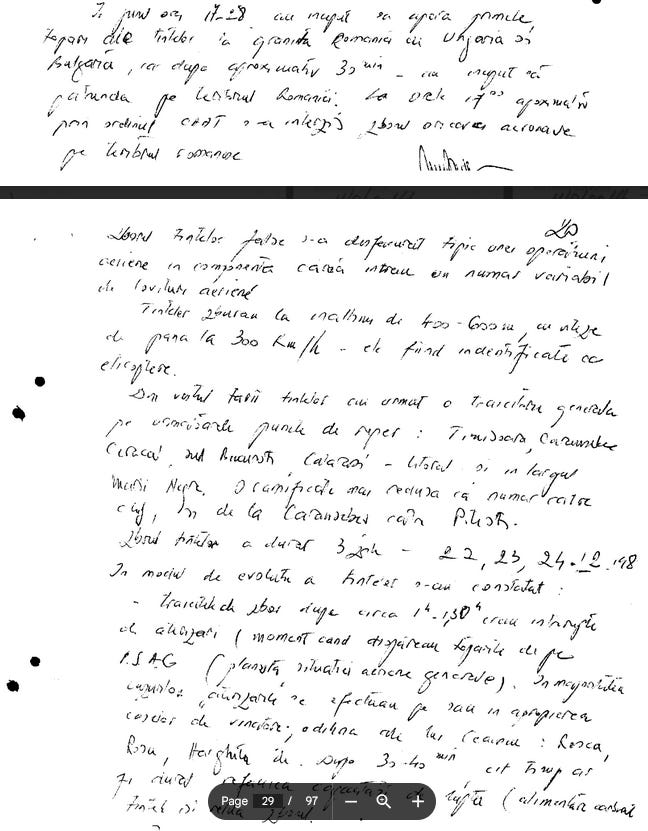 În jurul ore 17-28 au început să apară primele
topări ale țintelor la granița României cu Ungaria și
Bulgaria, iar după aproximativ 30 min - au început să
pătrundă pe teritoriul României. La orele aproximativ
prin ordinul s-a interzis zborul oricărei aeronave
pe teritoriul românesc
20
Zborul țintelor false s-a desfășurat tipic unei operațiuni
aeriene în componența căreia intrau un număr variabil
de lovituri aeriene
Țintele zburau la înălțimi de 400-600 m, cu viteze
de până la 300 km/h - ele fiind indentificate ca
elicoptere.
Din vestul țării țintele au urmat o traiectorie generală
pe următoarele puncte de reper: Timișoara, Caransebeș
Caracal, sud București, Călărași - litoral și în largul
Mării Negre. O ramificație mai redusă ca număr către
Cluj, de la Caransebeș către Pitești.
Zborul țintelor a durat 3 zile - 22, 23, 24.12.198
În modul de evoluție a țintelor s-au constatat:
- traiectele de zbor după circa 1h-1,30h erau întrerupte
de aterizări (moment când dispăreau topările de pe
P.S.A.G (planșeta situației aeriene generale). În majoritatea
cazurilor "aterizările" se efectuau pe sau în apropierea
caselor de vânătoare, odihnă ale lui Ceaușescu: Rosca,
Rosu, Harghita de După 30-40 min, cât timp ar
fi durat refacerea capacității de luptă (alimentare
țintele își reluau zborul.
Page 29 / 97